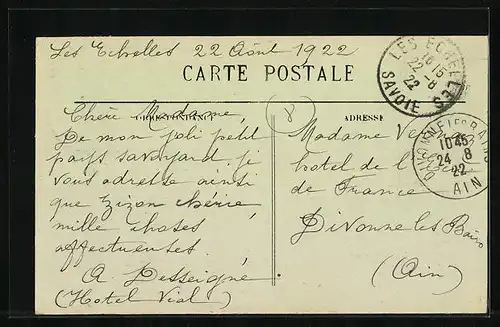 Les Echelles 22 Août 1922
CARTE POSTALE
LES ECHELLES
16 15
22 - 8
22
SAVOIE
CORRESPONDANCE
ADRESSE
Chère Madame,
De mon joli petit
pays savoyard je
vous adresse ainsi
que Zizon chérie,
mille choses
affectueuses.
A Desseigné
(Hotel Vial)
8
Madame
hotel de
de France
Divonne les Bains
(Ain)
DIVONNE LES BAINS
10 45
24 8
22
AIN